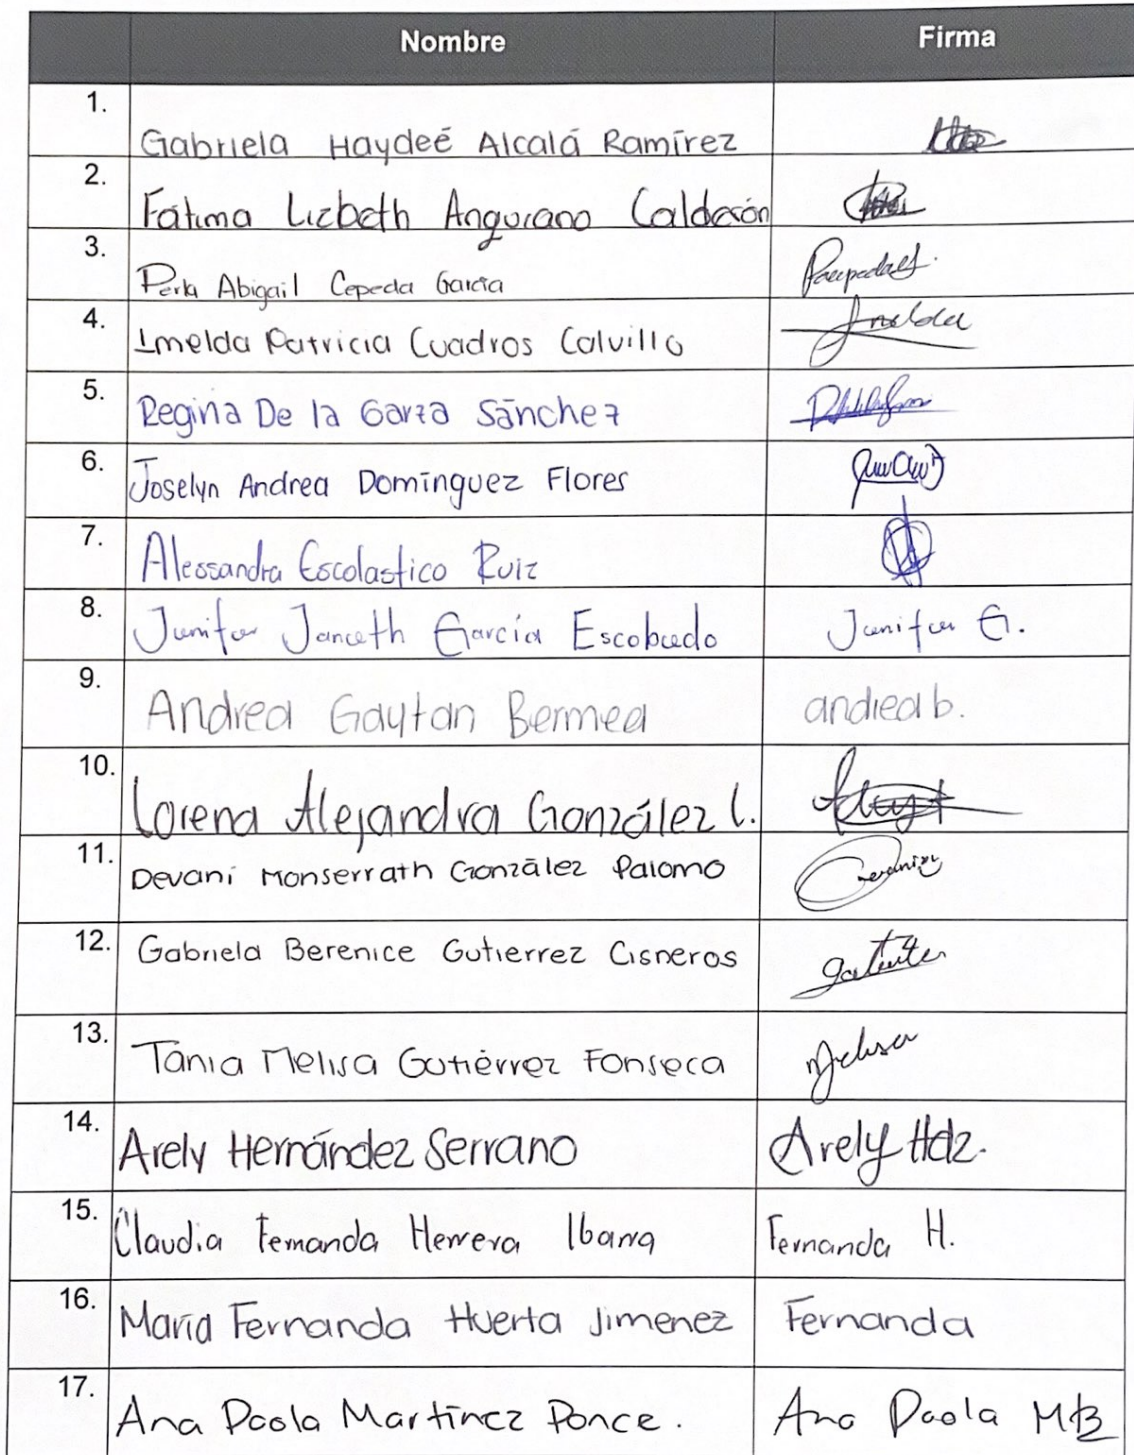 Nombre Firma
1. Gabriela Haydeé Alcalá Ramírez
2. Fátima Lizbeth Anguiano Calderón
3. Perla Abigail Cepeda García
4. Imelda Patricia Cuadros Calvillo Imelda
5. Regina De la Garza Sánchez
6. Joselyn Andrea Domínguez Flores
7. Alessandra Escolastico Ruiz
8. Junifer Janceth García Escobedo Junifer G.
9. Andrea Gaytan Bermea andrea b.
10. Lorena Alejandra González L.
11. Devani Monserrath González Palomo
12. Gabriela Berenice Gutierrez Cisneros
13. Tania Melisa Gutiérrez Fonseca Melisa
14. Arely Hernández Serrano Arely Hdz.
15. Claudia Fernanda Herrera Ibarra Fernanda H.
16. María Fernanda Huerta Jimenez Fernanda
17. Ana Paola Martínez Ponce. Ana Paola